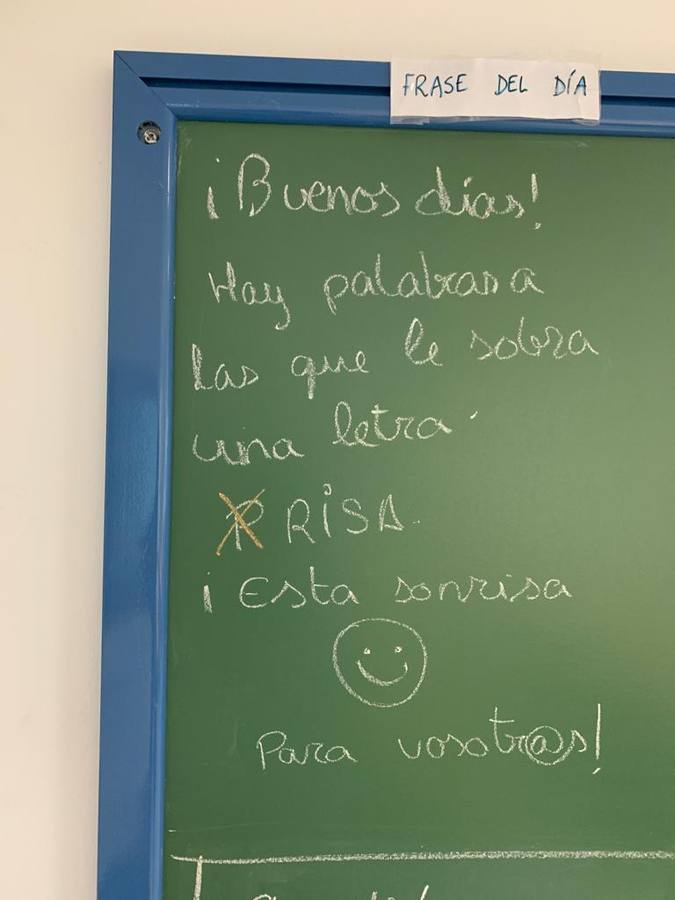 FRASE DEL DÍA
¡Buenos días!
Hay palabras a
las que le sobra
una letra.
PRISA.
¡Esta sonrisa
Para vosotr@s!